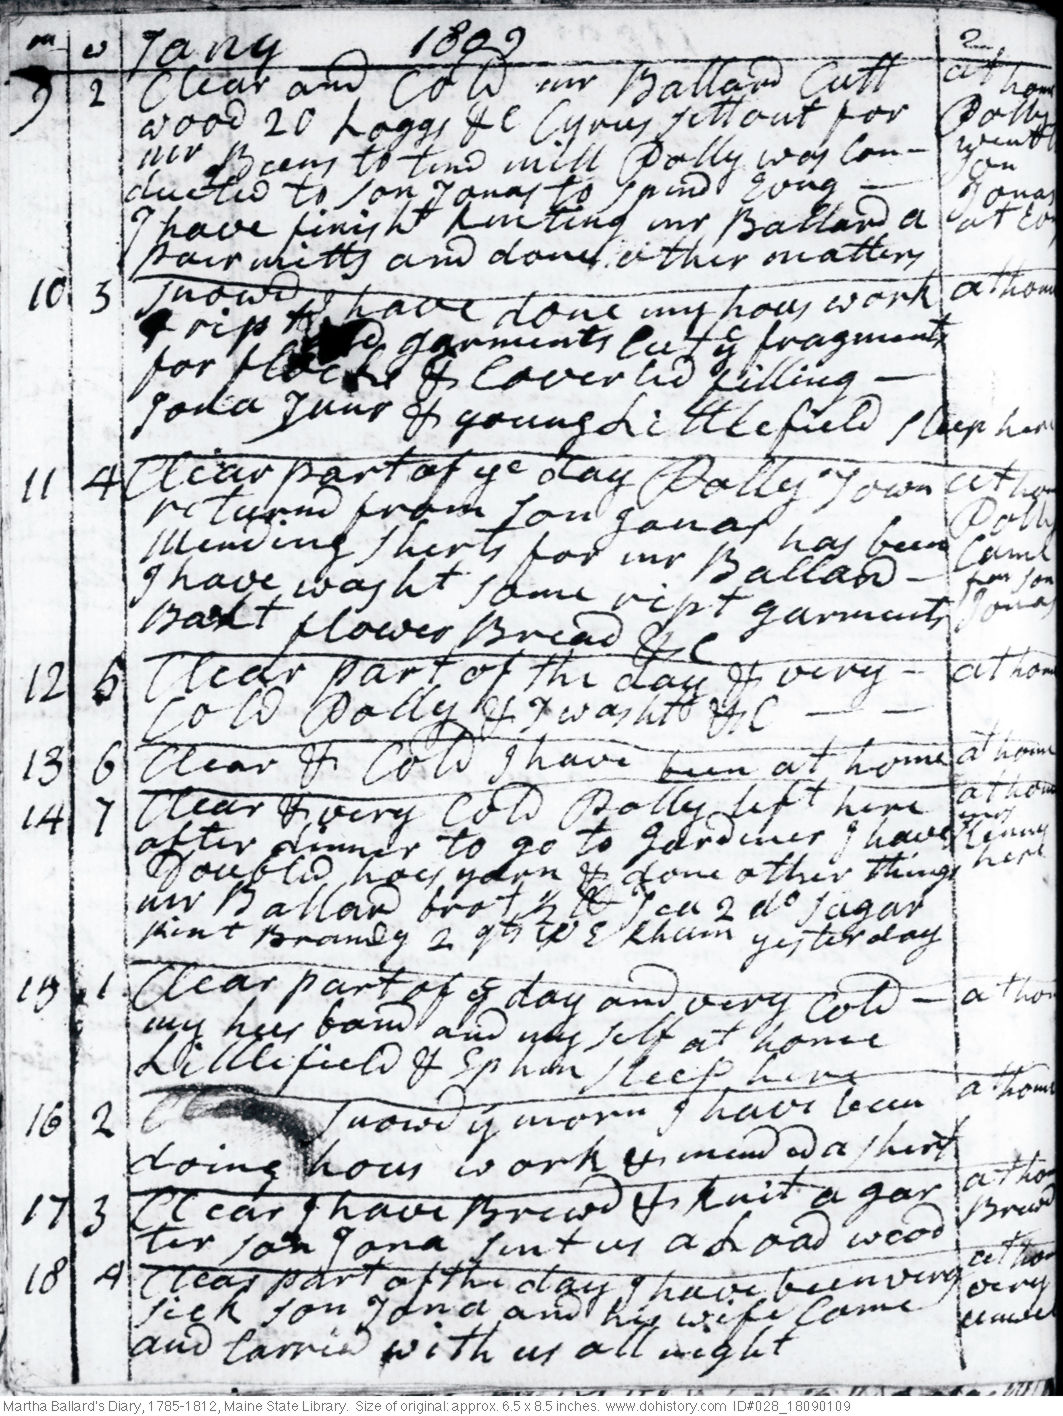 m w Jany 1809 2
9 2 Clear and Cold mr Ballard Cutt at home
wood 20 Loggs &C Cyrus sett out for Polly
mr Beens to tend mill Polly was Con- went to
ducted to son Jonas to spind Evng — son Jonas
I have finisht knitting mr Ballard a at Evn
pair mitts and done other matters
10 3 snowd I have done my hous work at home
& ript garments Cut ye fragments
for flocks & Coverlid filling —
Jona Junr & young Littlefield sleep here
11 4 Clear part of ye day Polly Town at home
returnd from son Jonas has been Polly
mending sherts for mr Ballard — Came
I have washt some ript garments from son
Bakt flower Bread &C Jonas
12 5 Clear part of the day & very — at home
Cold Polly & I washt &C — —
13 6 Clear & Cold I have been at home at home
14 7 Clear & very Cold Polly left here at home
after dinner to go to Gardiner I have mrs Kenny
Doubled hoes yarn & done other things here
mr Ballard brot ½ lb Tea 2 do sugar
pint Brandy 2 qts W E Rhum yesterday
15 1 Clear part of ye day and very Cold — at home
my husband and my self at home
Littlefield & Ephm sleep here
16 2 snowd ye morn I have been at home
doing hous work & mended a shirt
17 3 Clear I have Brewd & knit a gar at home
ter son Jona sent us a Load wood Brewd
18 4 Clear part of the day I have been very at home
sick son Jona and his wife Came very
and tarried with us all night unwell
Martha Ballard's Diary, 1785-1812, Maine State Library. Size of original: approx. 6.5 x 8.5 inches. www.dohistory.com ID#028_18090109